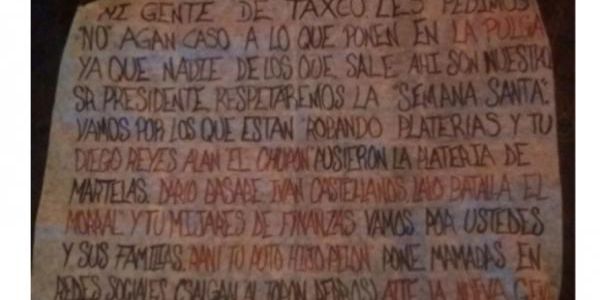 MI GENTE DE TAXCO LES PEDIMOS
"NO" AGAN CASO A LO QUE PONEN EN LA PULGA
YA QUE NADIE DE LOS QUE SALE AHI SON NUESTRO
SR. PRESIDENTE. RESPETAREMOS LA "SEMANA SANTA".
VAMOS POR LOS QUE ESTAN ROBANDO PLATERIAS Y TU
DIEGO REYES ALAN EL CHUPON" LA PLATERIA DE
MARTELAS. DARIO BASABE IVAN CASTELLANOS. LALO BATALLA EL
MORRAL" Y TU MIJARES DE FINANZAS VAMOS POR USTEDES
Y SUS FAMILIAS. DANI TU PUTO PELON" PONE MAMADAS EN
REDES SOCIALES (SALGAN AL TOPON PERROS) ATTE LA NUEVA